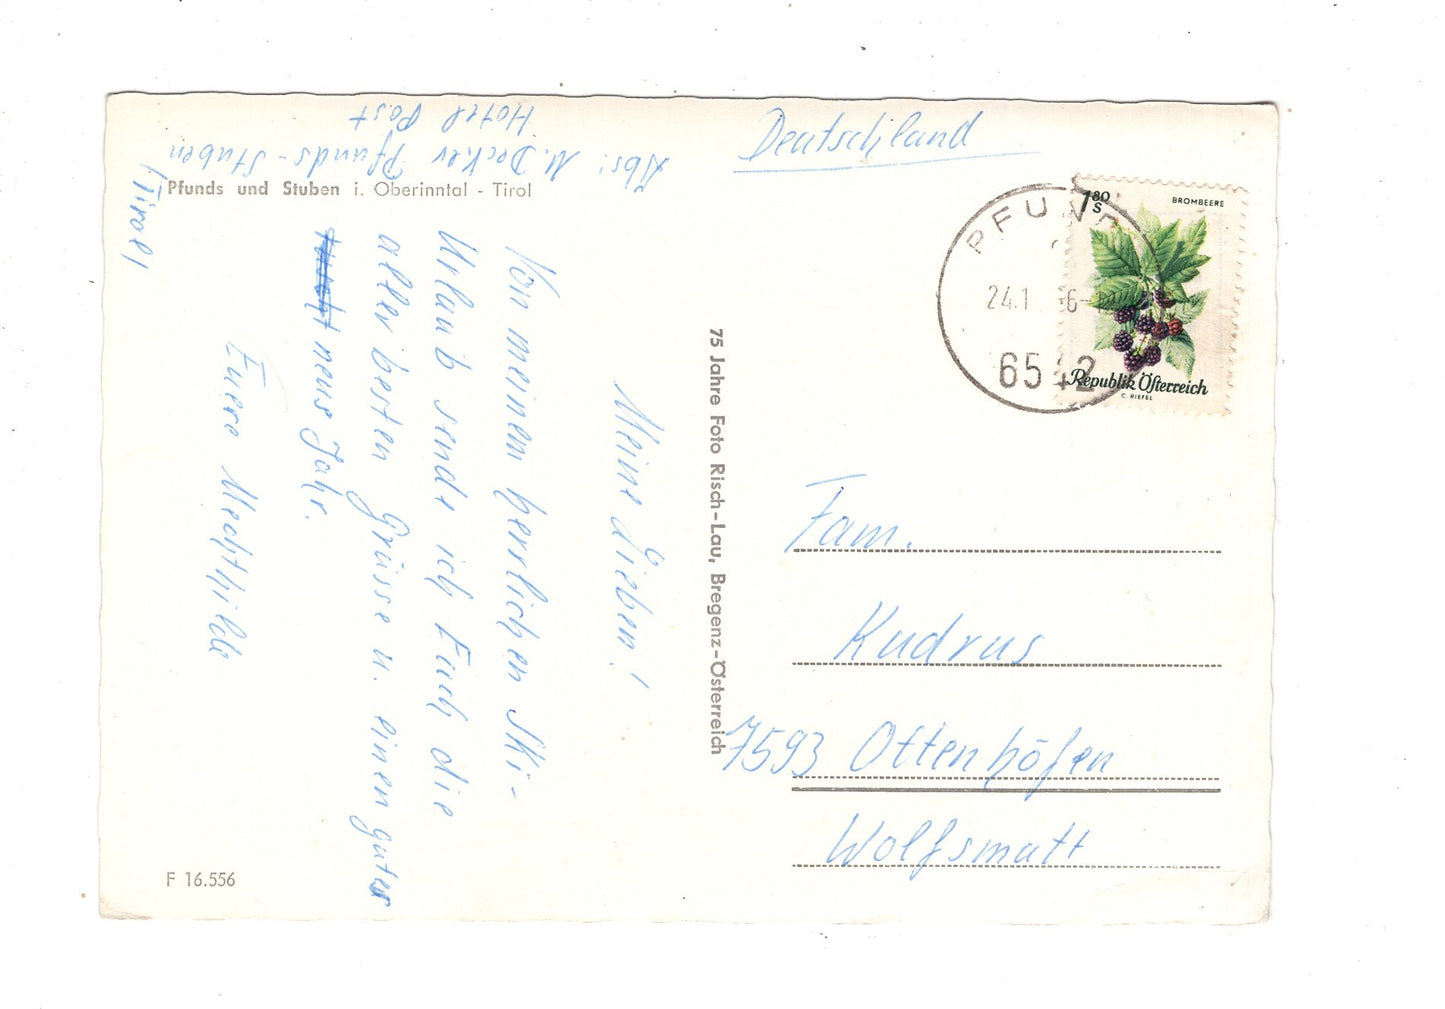 Abs: M. Decker Pfunds-Stuben
Hotel Post
(Tirol)
Pfunds und Stuben i. Oberinntal - Tirol
Meine Lieben!
Von meinem herrlichen Ski-
Urlaub sende ich Euch die
aller besten Grüsse u. einen guten
neues Jahr.
Euere Mechthilde
F 16.556
75 Jahre Foto Risch-Lau, Bregenz-Österreich
Deutschland
PFUND
24.1 6-
6542
1.80 S
BROMBEERE
Republik Österreich
C. RIEFEL
Fam.
Kudrus
7593 Ottenhöfen
Wolfsmatt